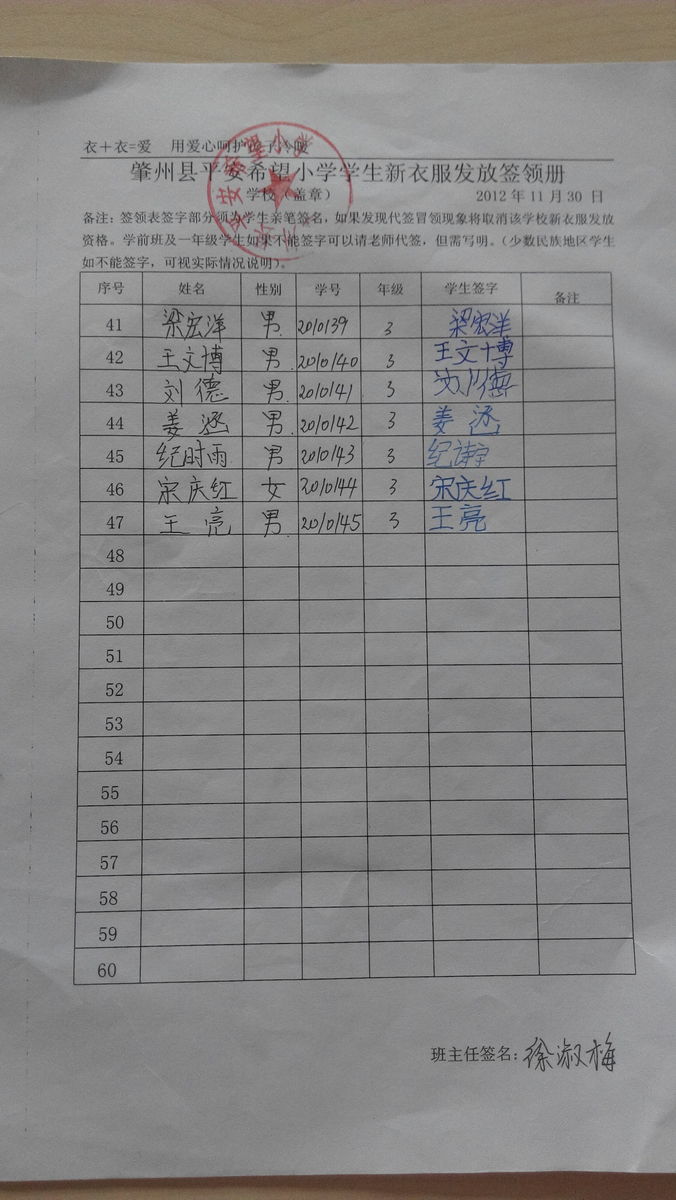 衣＋衣=爱 用爱心呵护孩子冷暖
肇州县平安希望小学学生新衣服发放签领册
学校（盖章） 2012 年 11 月 30 日
备注：签领表签字部分须为学生亲笔签名，如果发现代签冒领现象将取消该学校新衣服发放
资格。学前班及一年级学生如果不能签字可以请老师代签，但需写明。（少数民族地区学生
如不能签字，可视实际情况说明）。
序号 姓名 性别 学号 年级 学生签字 备注
41 梁宏洋 男 2010139 3 梁宏洋
42 王文博 男 2010140 3 王文博
43 刘德 男 2010141 3 刘德
44 姜丞 男 2010142 3 姜丞
45 纪时雨 男 2010143 3
46 宋庆红 女 2010144 3 宋庆红
47 王亮 男 2010145 3 王亮
48
49
50
51
52
53
54
55
56
57
58
59
60
班主任签名：徐淑梅